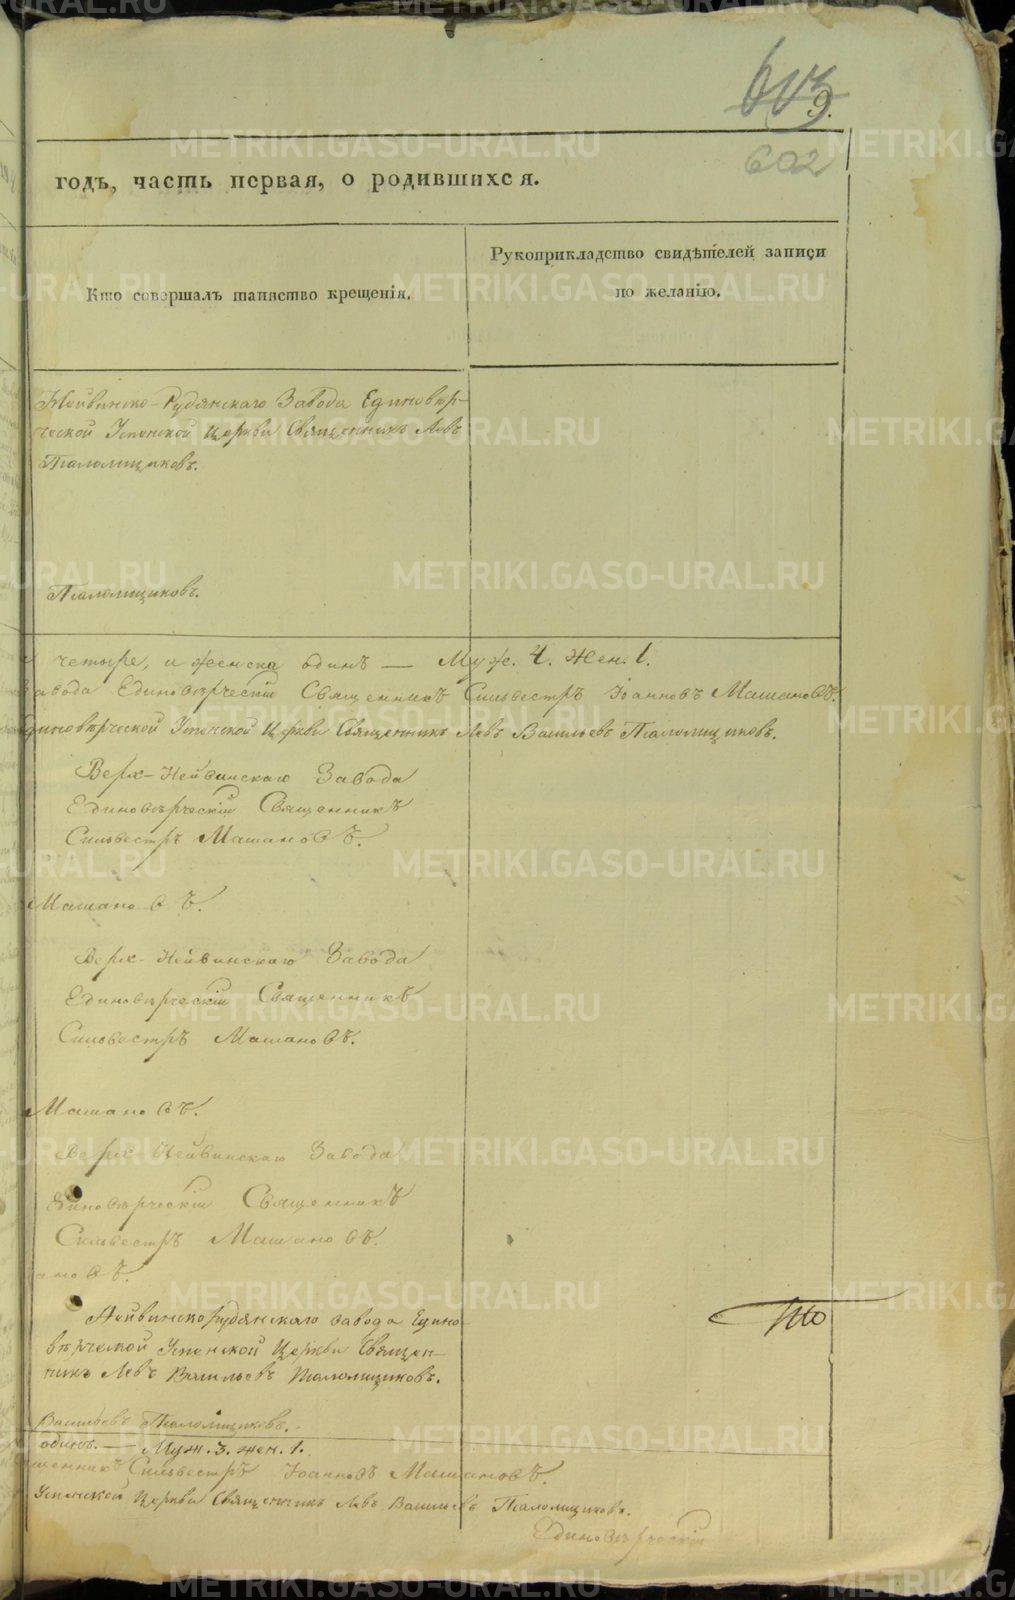 9.
602
годъ, часть первая, о родившихся.
Кто совершалъ таинство крещенія.
Рукоприкладство свидѣтелей записи
по желанію.
Нейвинско-Рудянскаго Завода Единовѣр-
ческой Успенской Церкви Священникъ Левъ
Паломщиковъ.
Паломщиковъ.
четыре, и женска одинъ — Муж. 4. Жен. 1.
завода Единовѣрческій Священникъ Сильвестръ Іоанновъ Машановъ.
диновѣрческой Успенской Церкви Священникъ Левъ Васильевъ Паломщиковъ.
Верх-Нейвинскаго Завода
Единовѣрческій Священникъ
Сильвестръ Машановъ.
Машановъ.
Верх-Нейвинскаго Завода
Единовѣрческій Священникъ
Сильвестръ Машановъ.
Машановъ.
Верх-Нейвинскаго Завода
Единовѣрческій Священникъ
Сильвестръ Машановъ.
ановъ.
Нейвинскорудянскаго завода Едино-
вѣрческой Успенской Церкви Священ-
никъ Левъ Васильевъ Паломщиковъ.
Васильевъ Паломщиковъ.
одинъ. — Муж. 3. жен. 1.
щенникъ Сильвестръ Іоанновъ Машановъ.
Успенской Церкви Священникъ Левъ Васильевъ Паломщиковъ.
Единовѣрческій
METRIKI.GASO-URAL.RU